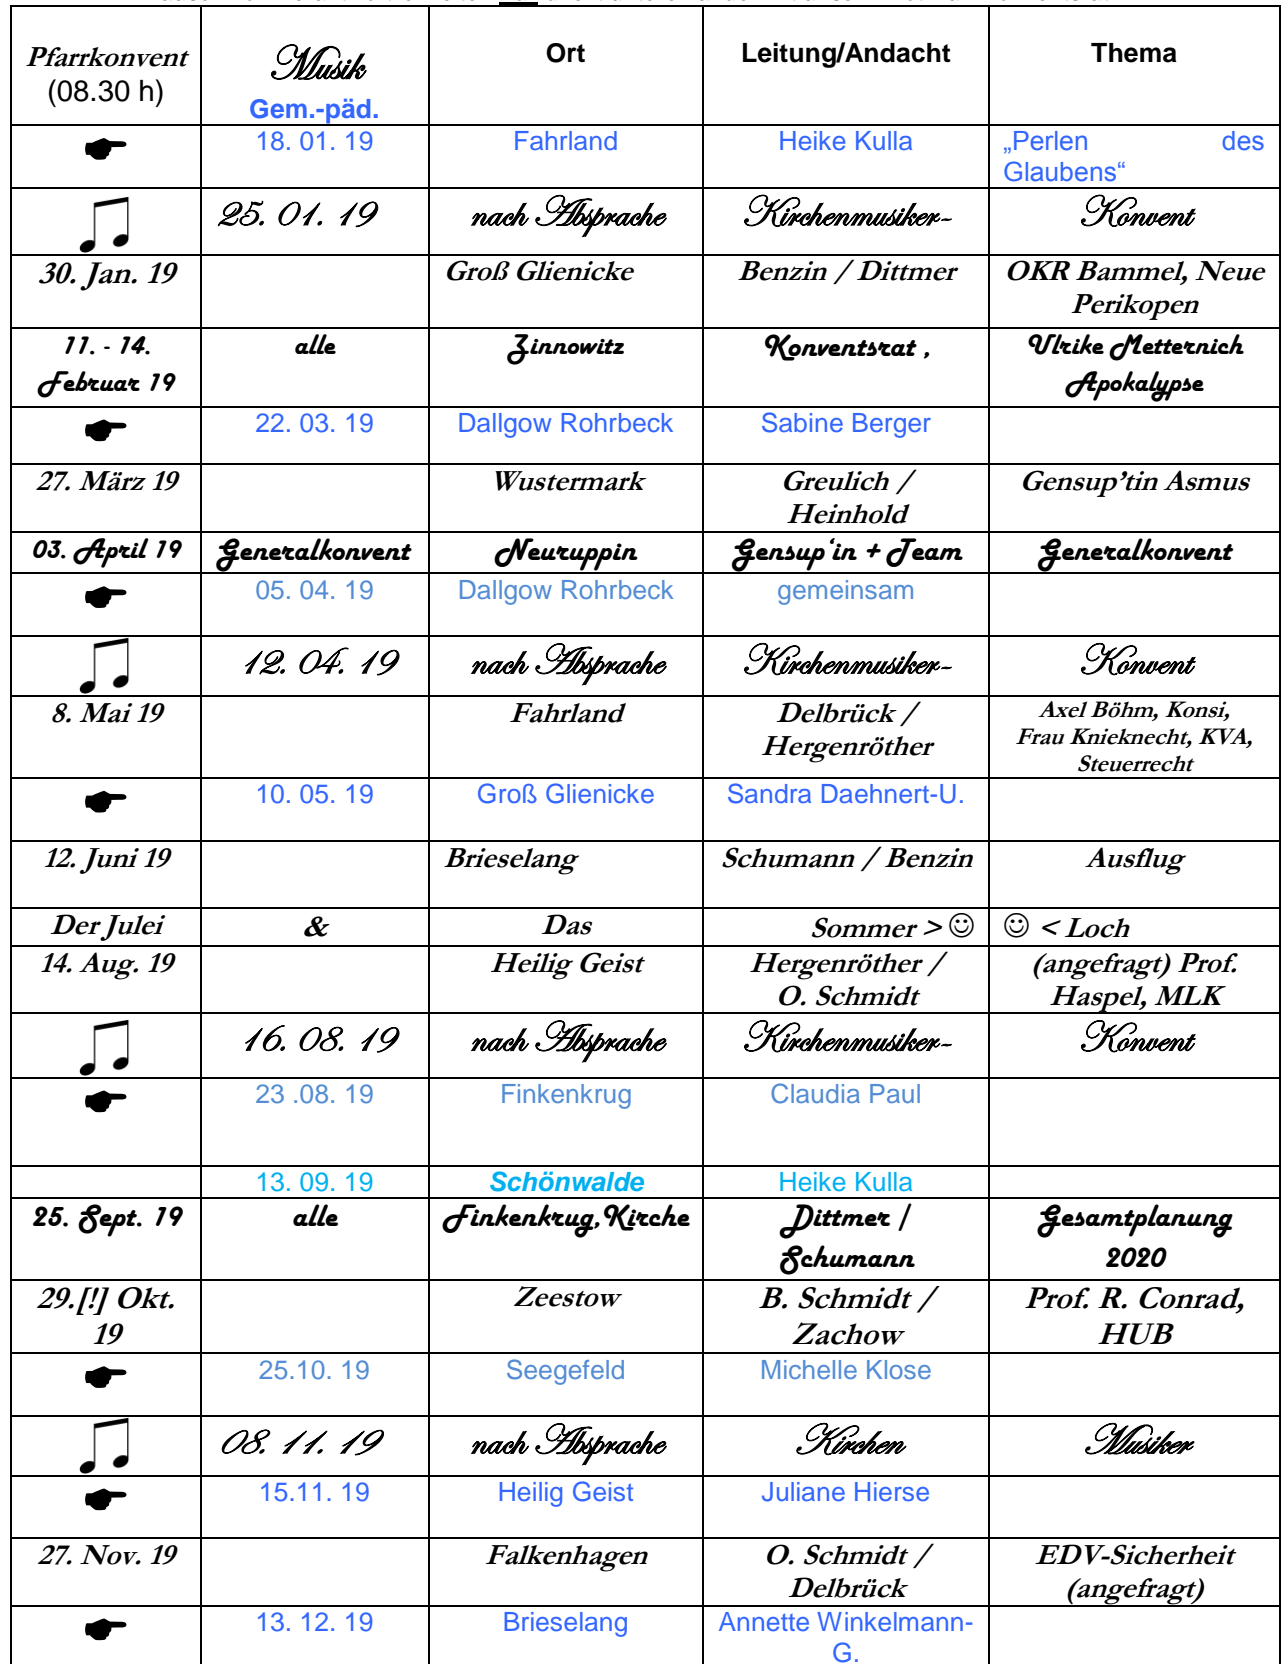 Pfarrkonvent (08.30 h) Musik Gem.-päd. Ort Leitung/Andacht Thema
☛ 18. 01. 19 Fahrland Heike Kulla „Perlen des Glaubens“
♫ 25. 01. 19 nach Absprache Kirchenmusiker- Konvent
30. Jan. 19 Groß Glienicke Benzin / Dittmer OKR Bammel, Neue Perikopen
11. - 14. Februar 19 alle Zinnowitz Konventsrat , Ulrike Metternich Apokalypse
☛ 22. 03. 19 Dallgow Rohrbeck Sabine Berger
27. März 19 Wustermark Greulich / Heinhold Gensup’tin Asmus
03. April 19 Generalkonvent Neuruppin Gensup‘in + Team Generalkonvent
☛ 05. 04. 19 Dallgow Rohrbeck gemeinsam
♫ 12. 04. 19 nach Absprache Kirchenmusiker- Konvent
8. Mai 19 Fahrland Delbrück / Hergenröther Axel Böhm, Konsi, Frau Knieknecht, KVA, Steuerrecht
☛ 10. 05. 19 Groß Glienicke Sandra Daehnert-U.
12. Juni 19 Brieselang Schumann / Benzin Ausflug
Der Julei & Das Sommer > ☺ ☺ < Loch
14. Aug. 19 Heilig Geist Hergenröther / O. Schmidt (angefragt) Prof. Haspel, MLK
♫ 16. 08. 19 nach Absprache Kirchenmusiker- Konvent
☛ 23 .08. 19 Finkenkrug Claudia Paul
13. 09. 19 Schönwalde Heike Kulla
25. Sept. 19 alle Finkenkrug,Kirche Dittmer / Schumann Gesamtplanung 2020
29.[!] Okt. 19 Zeestow B. Schmidt / Zachow Prof. R. Conrad, HUB
☛ 25.10. 19 Seegefeld Michelle Klose
♫ 08. 11. 19 nach Absprache Kirchen Musiker
☛ 15.11. 19 Heilig Geist Juliane Hierse
27. Nov. 19 Falkenhagen O. Schmidt / Delbrück EDV-Sicherheit (angefragt)
☛ 13. 12. 19 Brieselang Annette Winkelmann-G.